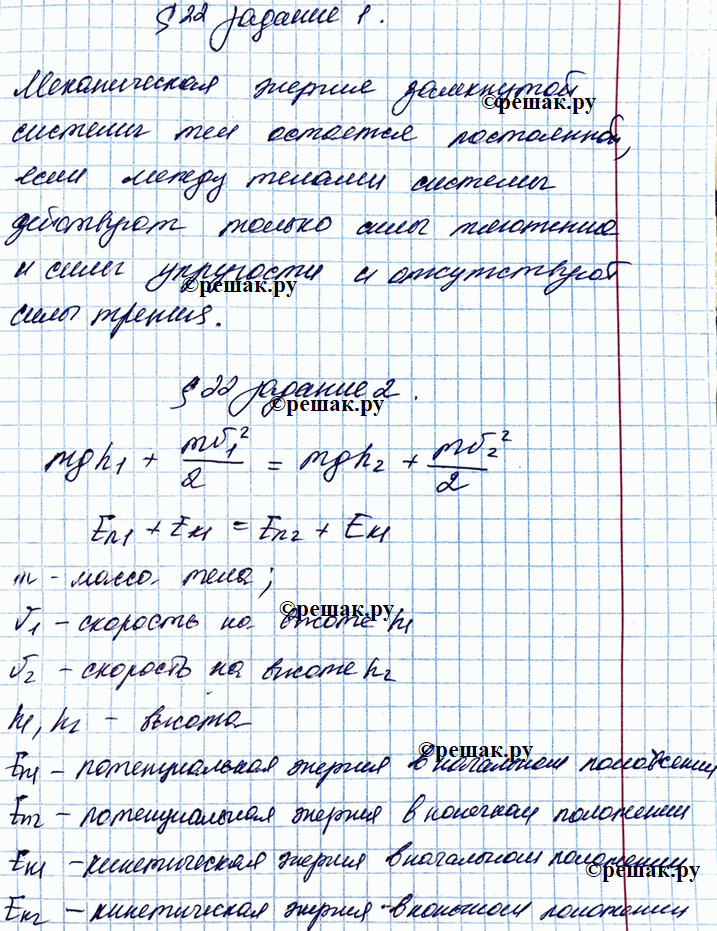 §22 задание 1.
Механическая энергия замкнутой
©решак.ру
системы тел остается постоянной,
если между телами системы
действуют только силы тяготения
и силы упругости и отсутствуют
©решак.ру
силы трения.
§22 задание 2.
©решак.ру
mgh₁ + mv₁²/2 = mgh₂ + mv₂²/2
Eп1 + Eк1 = Eп2 + Eк1
m - масса тела;
©решак.ру
v₁ - скорость на высоте h₁
v₂ - скорость на высоте h₂
h₁, h₂ - высота
©решак.ру
Eп1 - потенциальная энергия в начальном положении
Eп2 - потенциальная энергия в конечном положении
Eк1 - кинетическая энергия в начальном положении
©решак.ру
Eк2 - кинетическая энергия в конечном положении